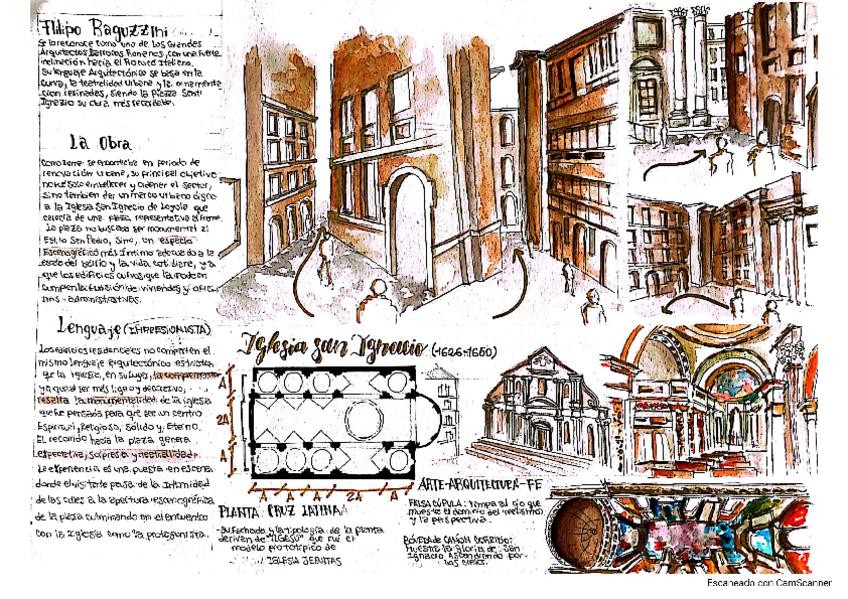 Filipo Raguzzini
Se lo reconoce como uno de los Grandes
Arquitectos Barrocos Romanos, con una fuerte
inclinación hacia el Rococó Italiano.
Su lenguaje Arquitectónico se basa en la
curva, la teatralidad Urbana y la ornamenta
ción refinadas, siendo la Piazza Sant'
Ignazio su obra más recordada.
La Obra
Como Roma se encontraba en periodo de
renovación urbana, su principal objetivo
no fue solo embellecer y ordenar el sector,
sino también dar un marco urbano digno
a la Iglesia San Ignacio de Loyola que
carecía de una plaza representativa al frente.
La plaza no buscaba ser monumental al
Estilo San Pedro, sino, un espacio
Escenográfico más íntimo adecuado a la
escala del barrio y la vida cotidiana, ya
que los edificios curvos que la rodean
cumplen la función de viviendas y
administrativas.
Lenguaje (IMPRESIONISTA)
Los edificios residenciales no comparten el
mismo lenguaje arquitectónico
que la Iglesia, en su lugar, la
ya que al ser más ligero y decorativo,
resalta la monumentalidad de la iglesia
que fue pensada para que sea un centro
Espiritual, Religioso, sólido y, Eterno.
El recorrido hacia la plaza genera
expectativa, sorpresa y teatralidad.
La experiencia es una puesta en escena
donde el visitante pasa de la Intimidad
de las calles a la apertura escenográfica
de la plaza culminando en el encuentro
con la Iglesia como la protagonista.
Iglesia San Ignacio (1626-1650)
A
2A
A
A A A 2A A
PLANTA CRUZ LATINA
- Su fachada y la tipología de la planta
derivan de "ILGESÚ" que fue el
modelo prototípico de
IGLESIA JESUITAS
ARTE-ARQUITECTURA-FE
FALSA CÚPULA: Trampa al ojo que
muestra el dominio del
y la perspectiva.
BÓVEDA de CAÑON CORRIDO:
Muestra la Gloria de San
Ignacio Ascendiendo por
los cielos.
Escaneado con CamScanner